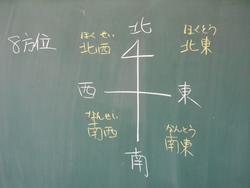 8方位
北
ほくせい
北西
ほくとう
北東
西
東
なんせい
南西
なんとう
南東
南